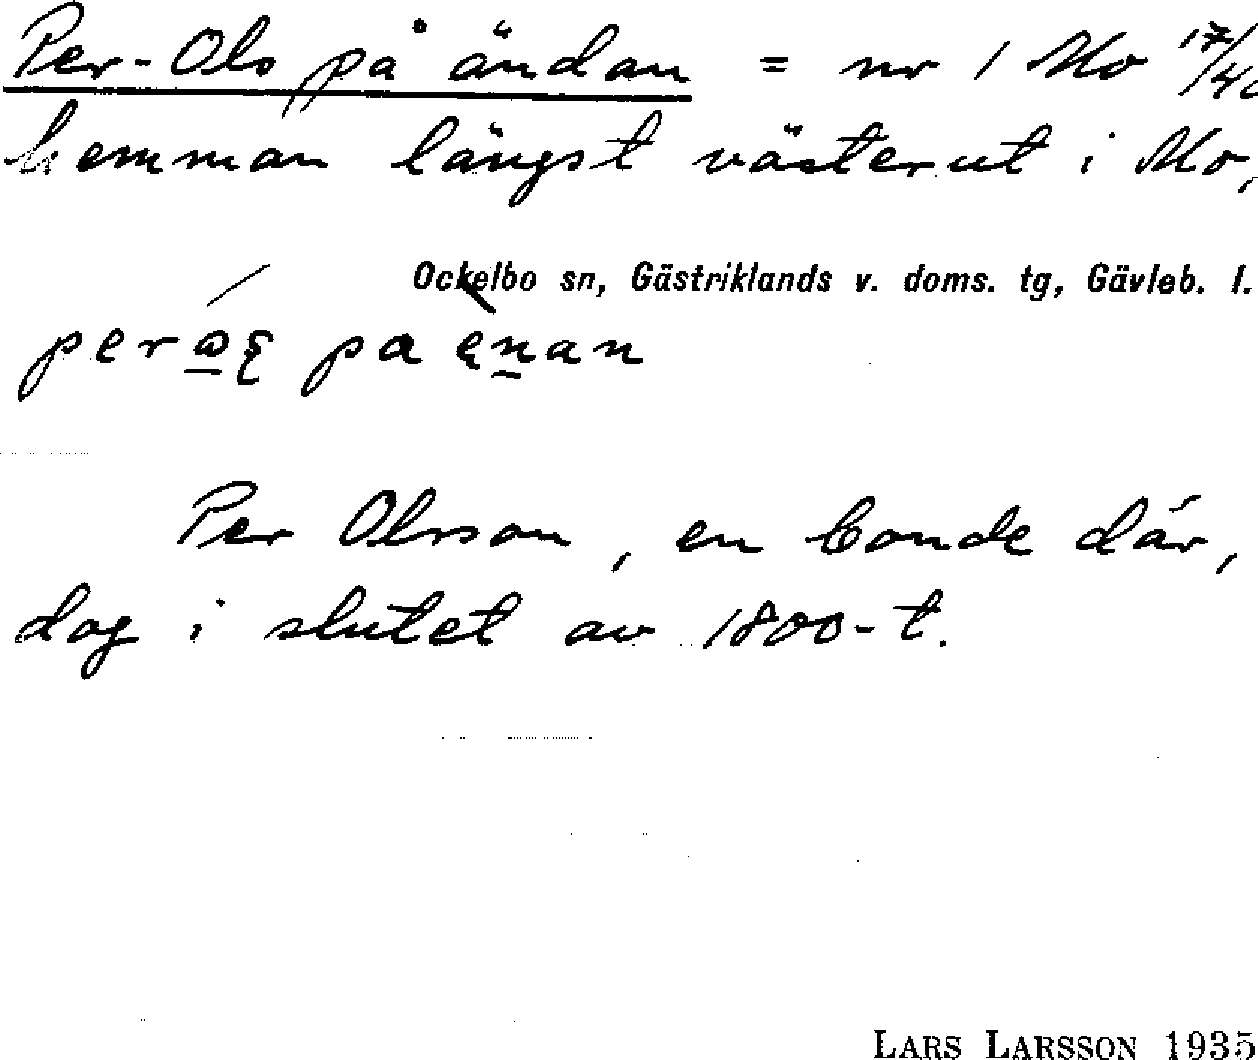 Per-Ols på ändan = nr 1 Mo 17/40
hemman längst västerut i Mo,
Ockelbo sn, Gästriklands v. doms. tg, Gävleb. l.
pa
Per Olsson, en bonde där,
dog i slutet av 1800-t.
LARS LARSSON 1935